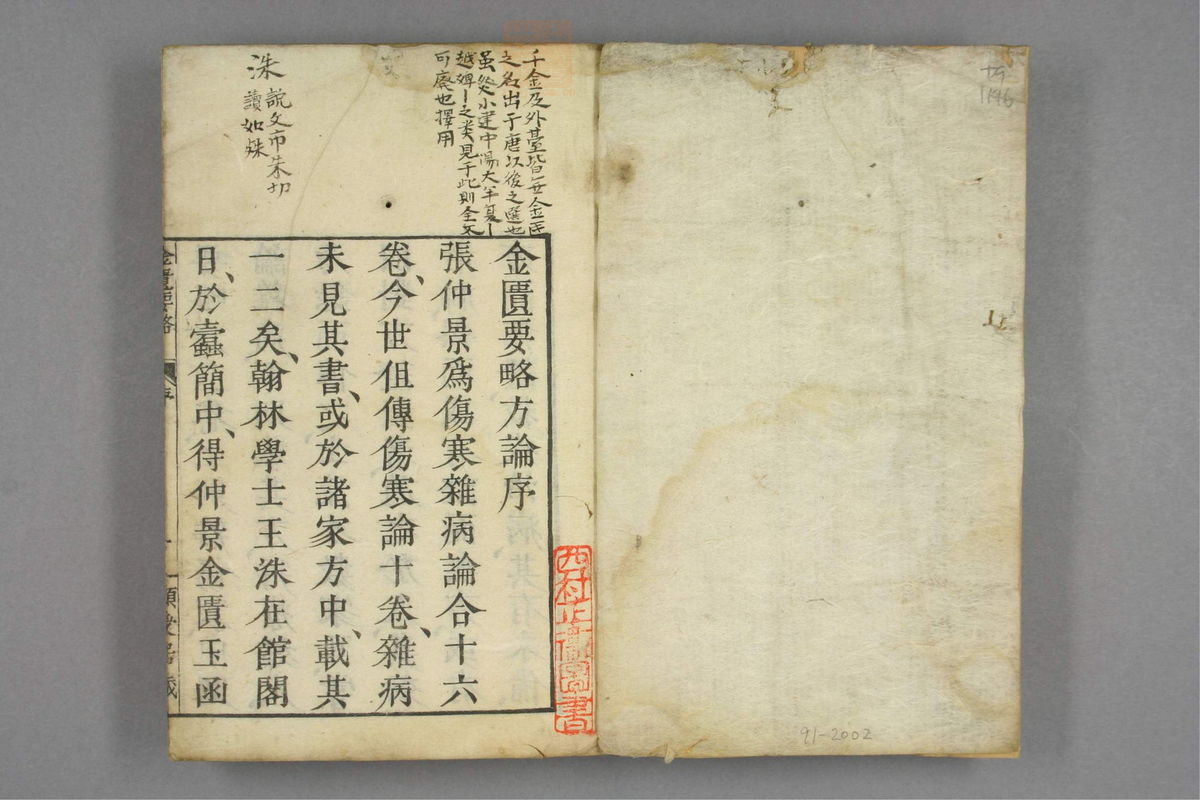 千金及外臺皆無金匱
之名出于唐以後之選也
虽然小建中湯大半夏｜
越婢｜之类見于此則全不
可廢也擇用
洙 說文市朱切
讀如殊
金匱要略方論序
張仲景爲傷寒雜病論合十六
卷、今世伹傳傷寒論十卷、雜病
未見其書、或於諸家方中、載其
一二矣、翰林學士王洙在館閣
日、於蠹簡中、得仲景金匱玉函
金匱要略
序
一
91-2002